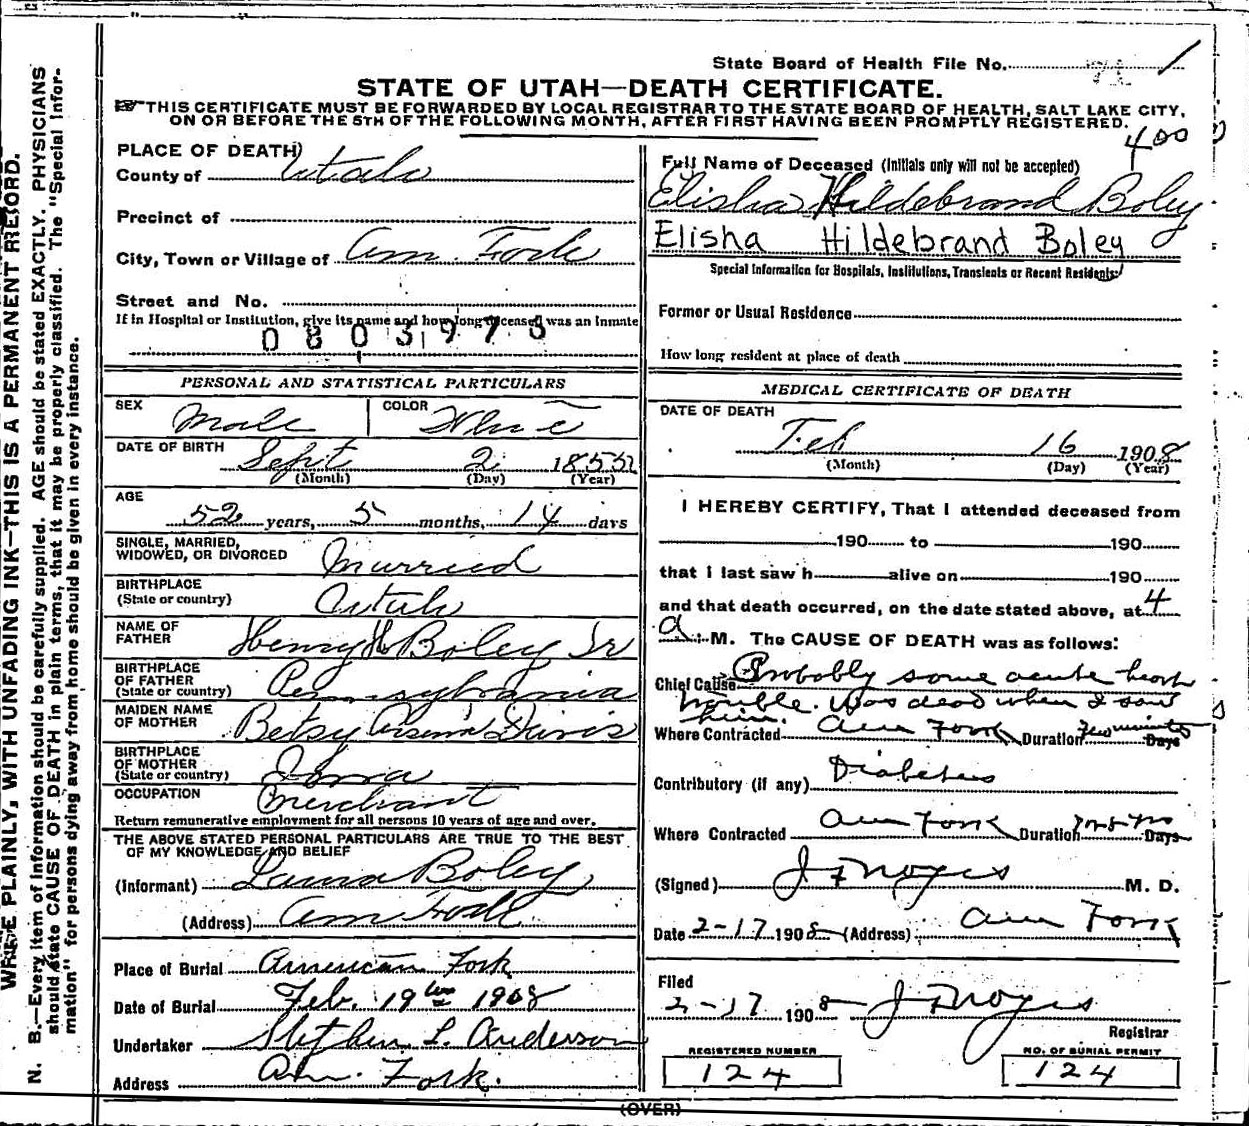 State Board of Health File No.
STATE OF UTAH—DEATH CERTIFICATE.
THIS CERTIFICATE MUST BE FORWARDED BY LOCAL REGISTRAR TO THE STATE BOARD OF HEALTH, SALT LAKE CITY,
ON OR BEFORE THE 5TH OF THE FOLLOWING MONTH, AFTER FIRST HAVING BEEN PROMPTLY REGISTERED.
400
PLACE OF DEATH
County of Utah
Precinct of
City, Town or Village of Am. Fork
Street and No.
If in Hospital or Institution, give its name and how long deceased was an inmate
0803973
PERSONAL AND STATISTICAL PARTICULARS
SEX Male COLOR White
DATE OF BIRTH Sept 2 1855
(Month) (Day) (Year)
AGE
52 years, 5 months, 14 days
SINGLE, MARRIED,
WIDOWED, OR DIVORCED Married
BIRTHPLACE
(State or country) Utah
NAME OF
FATHER Henry H Boley Sr
BIRTHPLACE
OF FATHER
(State or country) Pennsylvania
MAIDEN NAME
OF MOTHER Betsy Davis
BIRTHPLACE
OF MOTHER
(State or country) Iowa
OCCUPATION Merchant
Return remunerative employment for all persons 10 years of age and over.
THE ABOVE STATED PERSONAL PARTICULARS ARE TRUE TO THE BEST
OF MY KNOWLEDGE AND BELIEF
(Informant) Laura Boley
(Address) Am Fork
Place of Burial American Fork
Date of Burial Feb. 19th 1908
Undertaker Stephen L. Anderson
Address Am. Fork.
Full Name of Deceased (Initials only will not be accepted)
Elisha Hildebrand Boley
Elisha Hildebrand Boley
Special Information for Hospitals, Institutions, Transients or Recent Residents
Former or Usual Residence
How long resident at place of death
MEDICAL CERTIFICATE OF DEATH
DATE OF DEATH
Feb 16 1908
(Month) (Day) (Year)
I HEREBY CERTIFY, That I attended deceased from
190 to 190
that I last saw h alive on 190
and that death occurred, on the date stated above, at 4
a. M. The CAUSE OF DEATH was as follows:
Chief Cause Probably some acute heart
trouble. Was dead when I saw
him.
Where Contracted Am Fork Duration Few minutes Days
Contributory (if any) Diabetes
Where Contracted Am Fork Duration Days
(Signed) J F Noyes M. D.
Date 2-17 1908 (Address) Am Fork
Filed
2-17 1908 J F Noyes
Registrar
REGISTERED NUMBER
124
NO. OF BURIAL PERMIT
124
(OVER)
WRITE PLAINLY, WITH UNFADING INK—THIS IS A PERMANENT RECORD.
N. B.—Every item of information should be carefully supplied. AGE should be stated EXACTLY. PHYSICIANS
should state CAUSE OF DEATH in plain terms, that it may be properly classified. The "Special Infor-
mation" for persons dying away from home should be given in every instance.